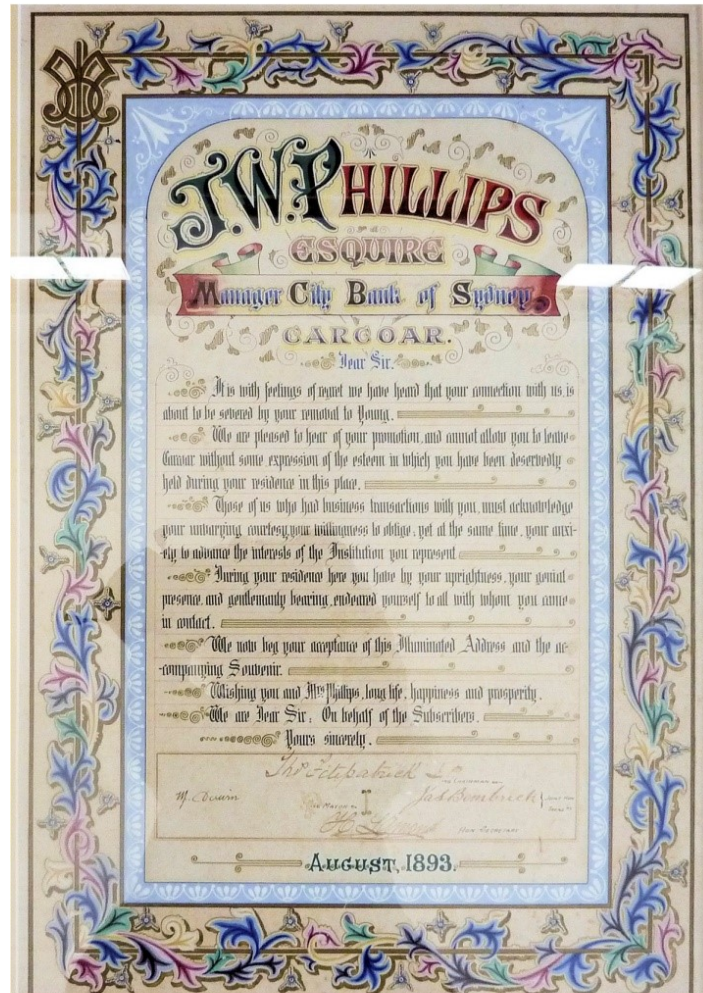 J.W. PHILLIPS
ESQUIRE
Manager City Bank of Sydney
CARCOAR.
Dear Sir.
It is with feelings of regret we have heard that your connection with us, is
about to be severed by your removal to Young.
We are pleased to hear of your promotion, and cannot allow you to leave
Carcoar without some expression of the esteem in which you have been deservedly
held during your residence in this place.
Those of us who had business transactions with you, must acknowledge
your unvarying courtesy, your willingness to oblige; yet at the same time, your anxi-
ety to advance the interests of the Institution you represent
During your residence here you have by your uprightness, your genial
presence, and gentlemanly bearing, endeared yourself to all with whom you came
in contact.
We now beg your acceptance of this Illuminated Address and the ac-
companying Souvenir.
Wishing you and Mrs Phillips, long life, happiness and prosperity.
We are Dear Sir; On behalf of the Subscribers.
Yours sincerely.
Thos Fitzpatrick
CHAIRMAN
Hon Secretary
AUGUST, 1893.